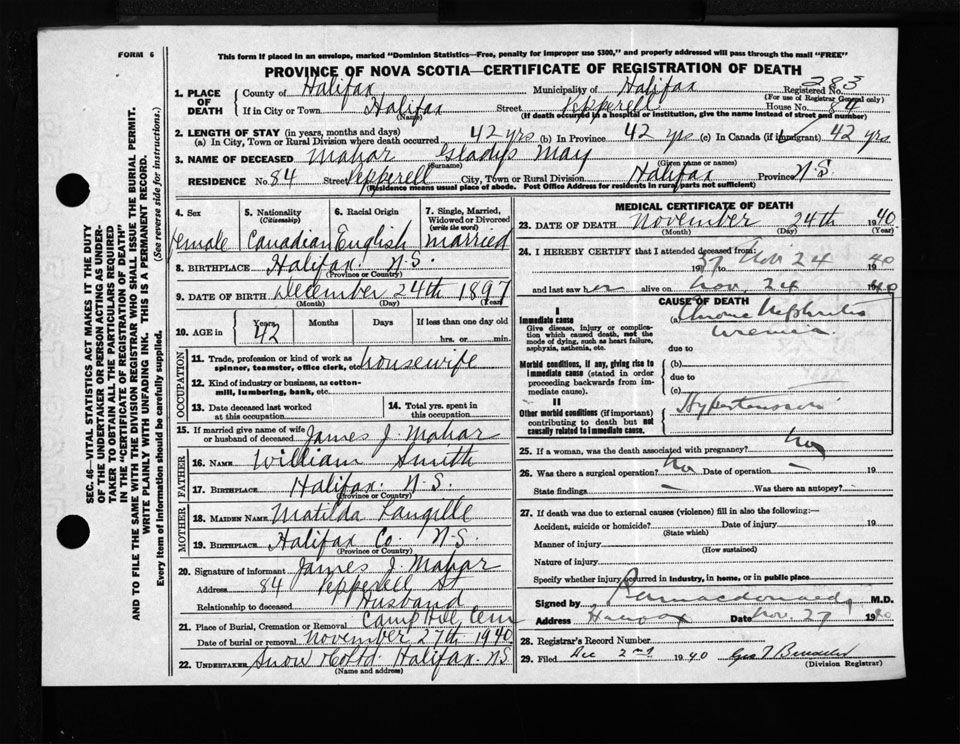 FORM 6
This form if placed in an envelope, marked "Dominion Statistics—Free, penalty for improper use $300," and properly addressed will pass through the mail "FREE"
PROVINCE OF NOVA SCOTIA—CERTIFICATE OF REGISTRATION OF DEATH
SEC. 46—VITAL STATISTICS ACT MAKES IT THE DUTY
OF THE UNDERTAKER OR PERSON ACTING AS UNDER-
TAKER TO OBTAIN ALL THE PARTICULARS REQUIRED
IN THE "CERTIFICATE OF REGISTRATION OF DEATH"
AND TO FILE THE SAME WITH THE DIVISION REGISTRAR WHO SHALL ISSUE THE BURIAL PERMIT.
WRITE PLAINLY WITH UNFADING INK. THIS IS A PERMANENT RECORD.
Every item of information should be carefully supplied. (See reverse side for instructions.)
1. PLACE OF DEATH
County of Halifax Municipality of Halifax Registered No. 283
(For use of Registrar General only)
If in City or Town Halifax Street Pepperell House No. 84
(Name) (If death occurred in a hospital or institution, give the name instead of street and number)
2. LENGTH OF STAY (in years, months and days)
(a) In City, Town or Rural Division where death occurred 42 yrs (b) In Province 42 yrs (c) In Canada (if immigrant) 42 yrs
3. NAME OF DECEASED Mahar Gladys May
(Surname) (Given name or names)
RESIDENCE No. 84 Street Pepperell City, Town or Rural Division Halifax Province N.S.
(Residence means usual place of abode. Post Office Address for residents in rural parts not sufficient)
4. Sex
female
5. Nationality
(Citizenship)
Canadian
6. Racial Origin
English
7. Single, Married,
Widowed or Divorced
(write the word)
Married
8. BIRTHPLACE Halifax N.S.
(Province or Country)
9. DATE OF BIRTH December 24th 1897
(Month) (Day) (Year)
10. AGE in Years Months Days If less than one day old
42 hrs. or min.
OCCUPATION
11. Trade, profession or kind of work as
spinner, teamster, office clerk, etc. housewife
12. Kind of industry or business, as cotton-
mill, lumbering, bank, etc.
13. Date deceased last worked
at this occupation
14. Total yrs. spent in
this occupation
15. If married give name of wife
or husband of deceased James J. Mahar
FATHER
16. NAME William Smith
17. BIRTHPLACE Halifax N.S.
(Province or Country)
MOTHER
18. MAIDEN NAME Matilda Langille
19. BIRTHPLACE Halifax Co. N.S.
(Province or Country)
20. Signature of informant James J. Mahar
Address 84 Pepperell St
Relationship to deceased Husband
21. Place of Burial, Cremation or Removal Camp Hill Cem
Date of burial or removal November 27th 1940
22. UNDERTAKER Snow Co Ltd. Halifax NS
(Name and address)
MEDICAL CERTIFICATE OF DEATH
23. DATE OF DEATH November 24th 1940
(Month) (Day) (Year)
24. I HEREBY CERTIFY that I attended deceased from:
1937 to Nov 24 1940
and last saw her alive on Nov. 24 1940
CAUSE OF DEATH
I
Immediate cause
Give disease, injury or complica-
tion which caused death, not the
mode of dying, such as heart failure,
asphyxia, asthenia, etc.
(a) Chronic Nephritis
Uremia
due to
Morbid conditions, if any, giving rise to
immediate cause (stated in order
proceeding backwards from im-
mediate cause).
(b)
due to
(c)
II
Other morbid conditions (if important)
contributing to death but not
causally related to immediate cause.
Hypertension
25. If a woman, was the death associated with pregnancy? No
26. Was there a surgical operation? No Date of operation — 19
State findings — Was there an autopsy? —
27. If death was due to external causes (violence) fill in also the following:—
Accident, suicide or homicide? Date of injury 19
(State which)
Manner of injury
(How sustained)
Nature of injury
Specify whether injury occurred in industry, in home, or in public place
Signed by Macdonald M.D.
Address Halifax Date Nov. 27 1940
28. Registrar's Record Number
29. Filed Dec 2nd 1940
(Division Registrar)